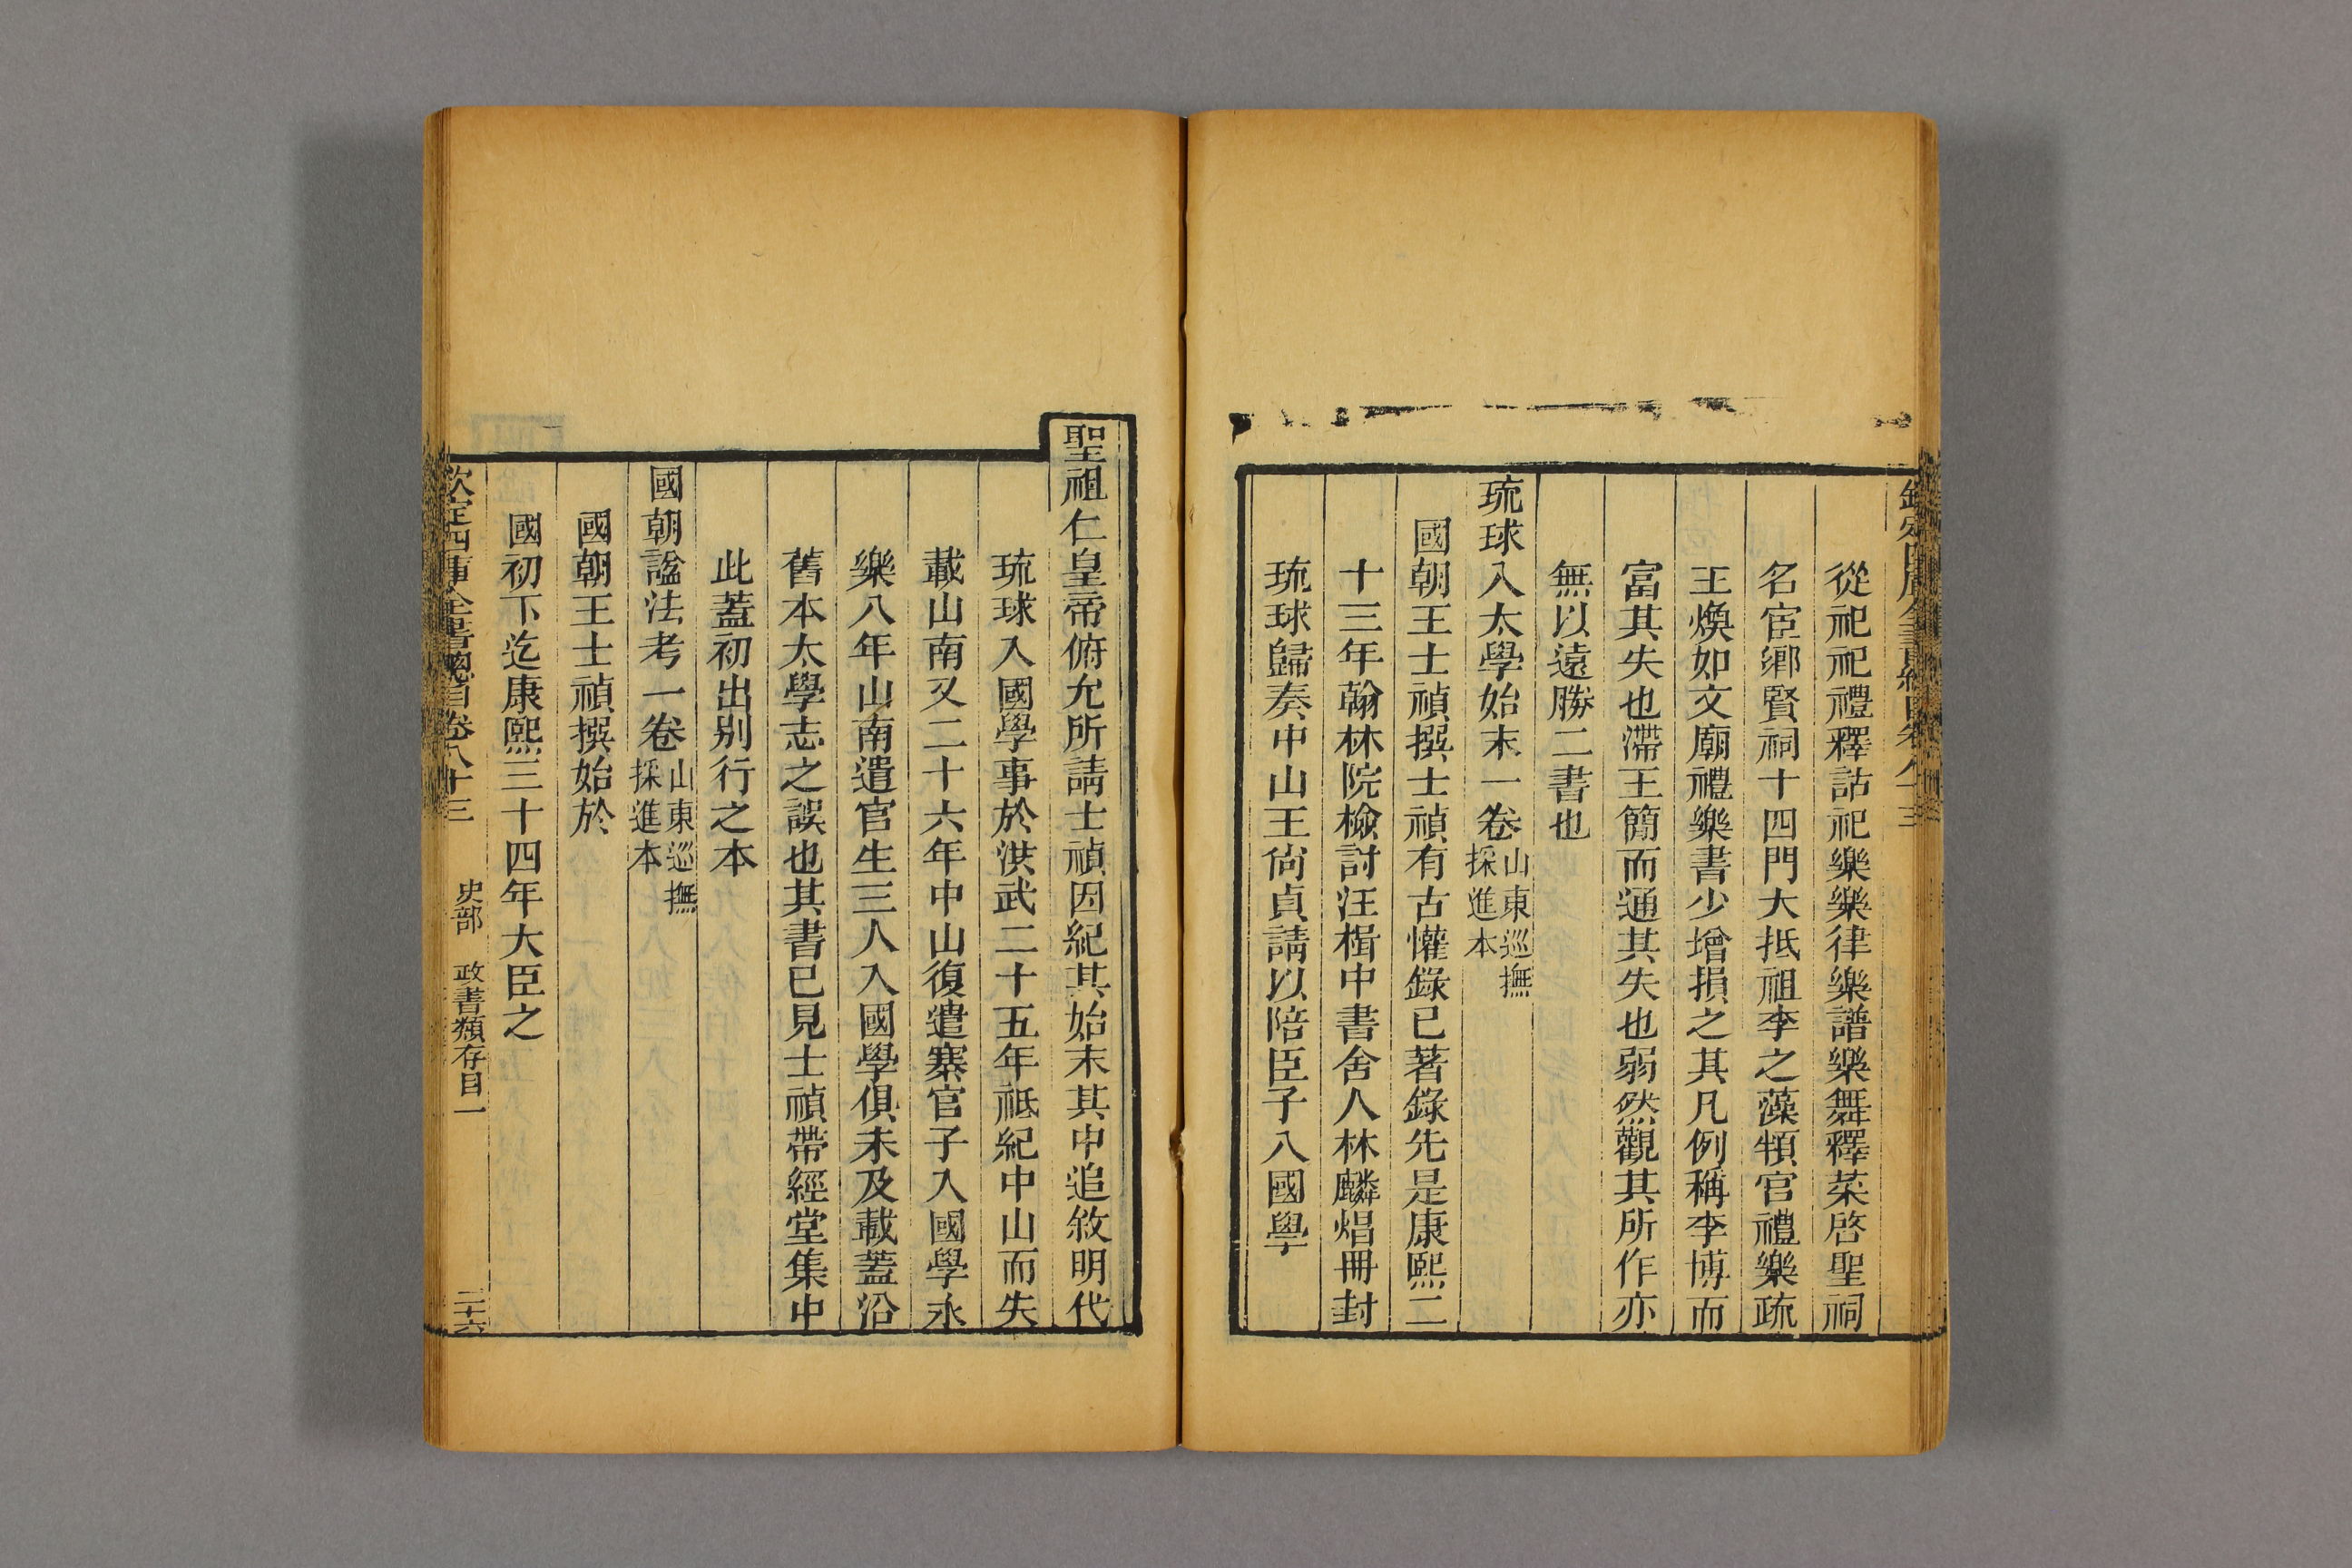 從祀祀禮釋詁祀樂樂律樂譜樂舞釋菜啓聖祠
名宦鄉賢祠十四門大抵祖李之藻頖宮禮樂疏
王煥如文廟禮樂書少增損之其凡例稱李博而
富其失也滯王簡而通其失也弱然觀其所作亦
無以遠勝二書也
琉球入太學始末一卷山東巡撫採進本
國朝王士禎撰士禎有古懽錄已著錄先是康熙二
十三年翰林院檢討汪楫中書舍人林麟焻冊封
琉球歸奏中山王尙貞請以陪臣子入國學
聖祖仁皇帝俯允所請士禎因紀其始末其中追敘明代
琉球入國學事於洪武二十五年祗紀中山而失
載山南又二十六年中山復遣寨官子入國學永
樂八年山南遣官生三人入國學俱未及載蓋沿
舊本太學志之誤也其書已見士禎帶經堂集中
此蓋初出別行之本
國朝諡法考一卷山東巡撫採進本
國朝王士禎撰始於
國初下迄康熙三十四年大臣之
欽定四庫全書總目卷八十三 史部 政書類存目一 二十六